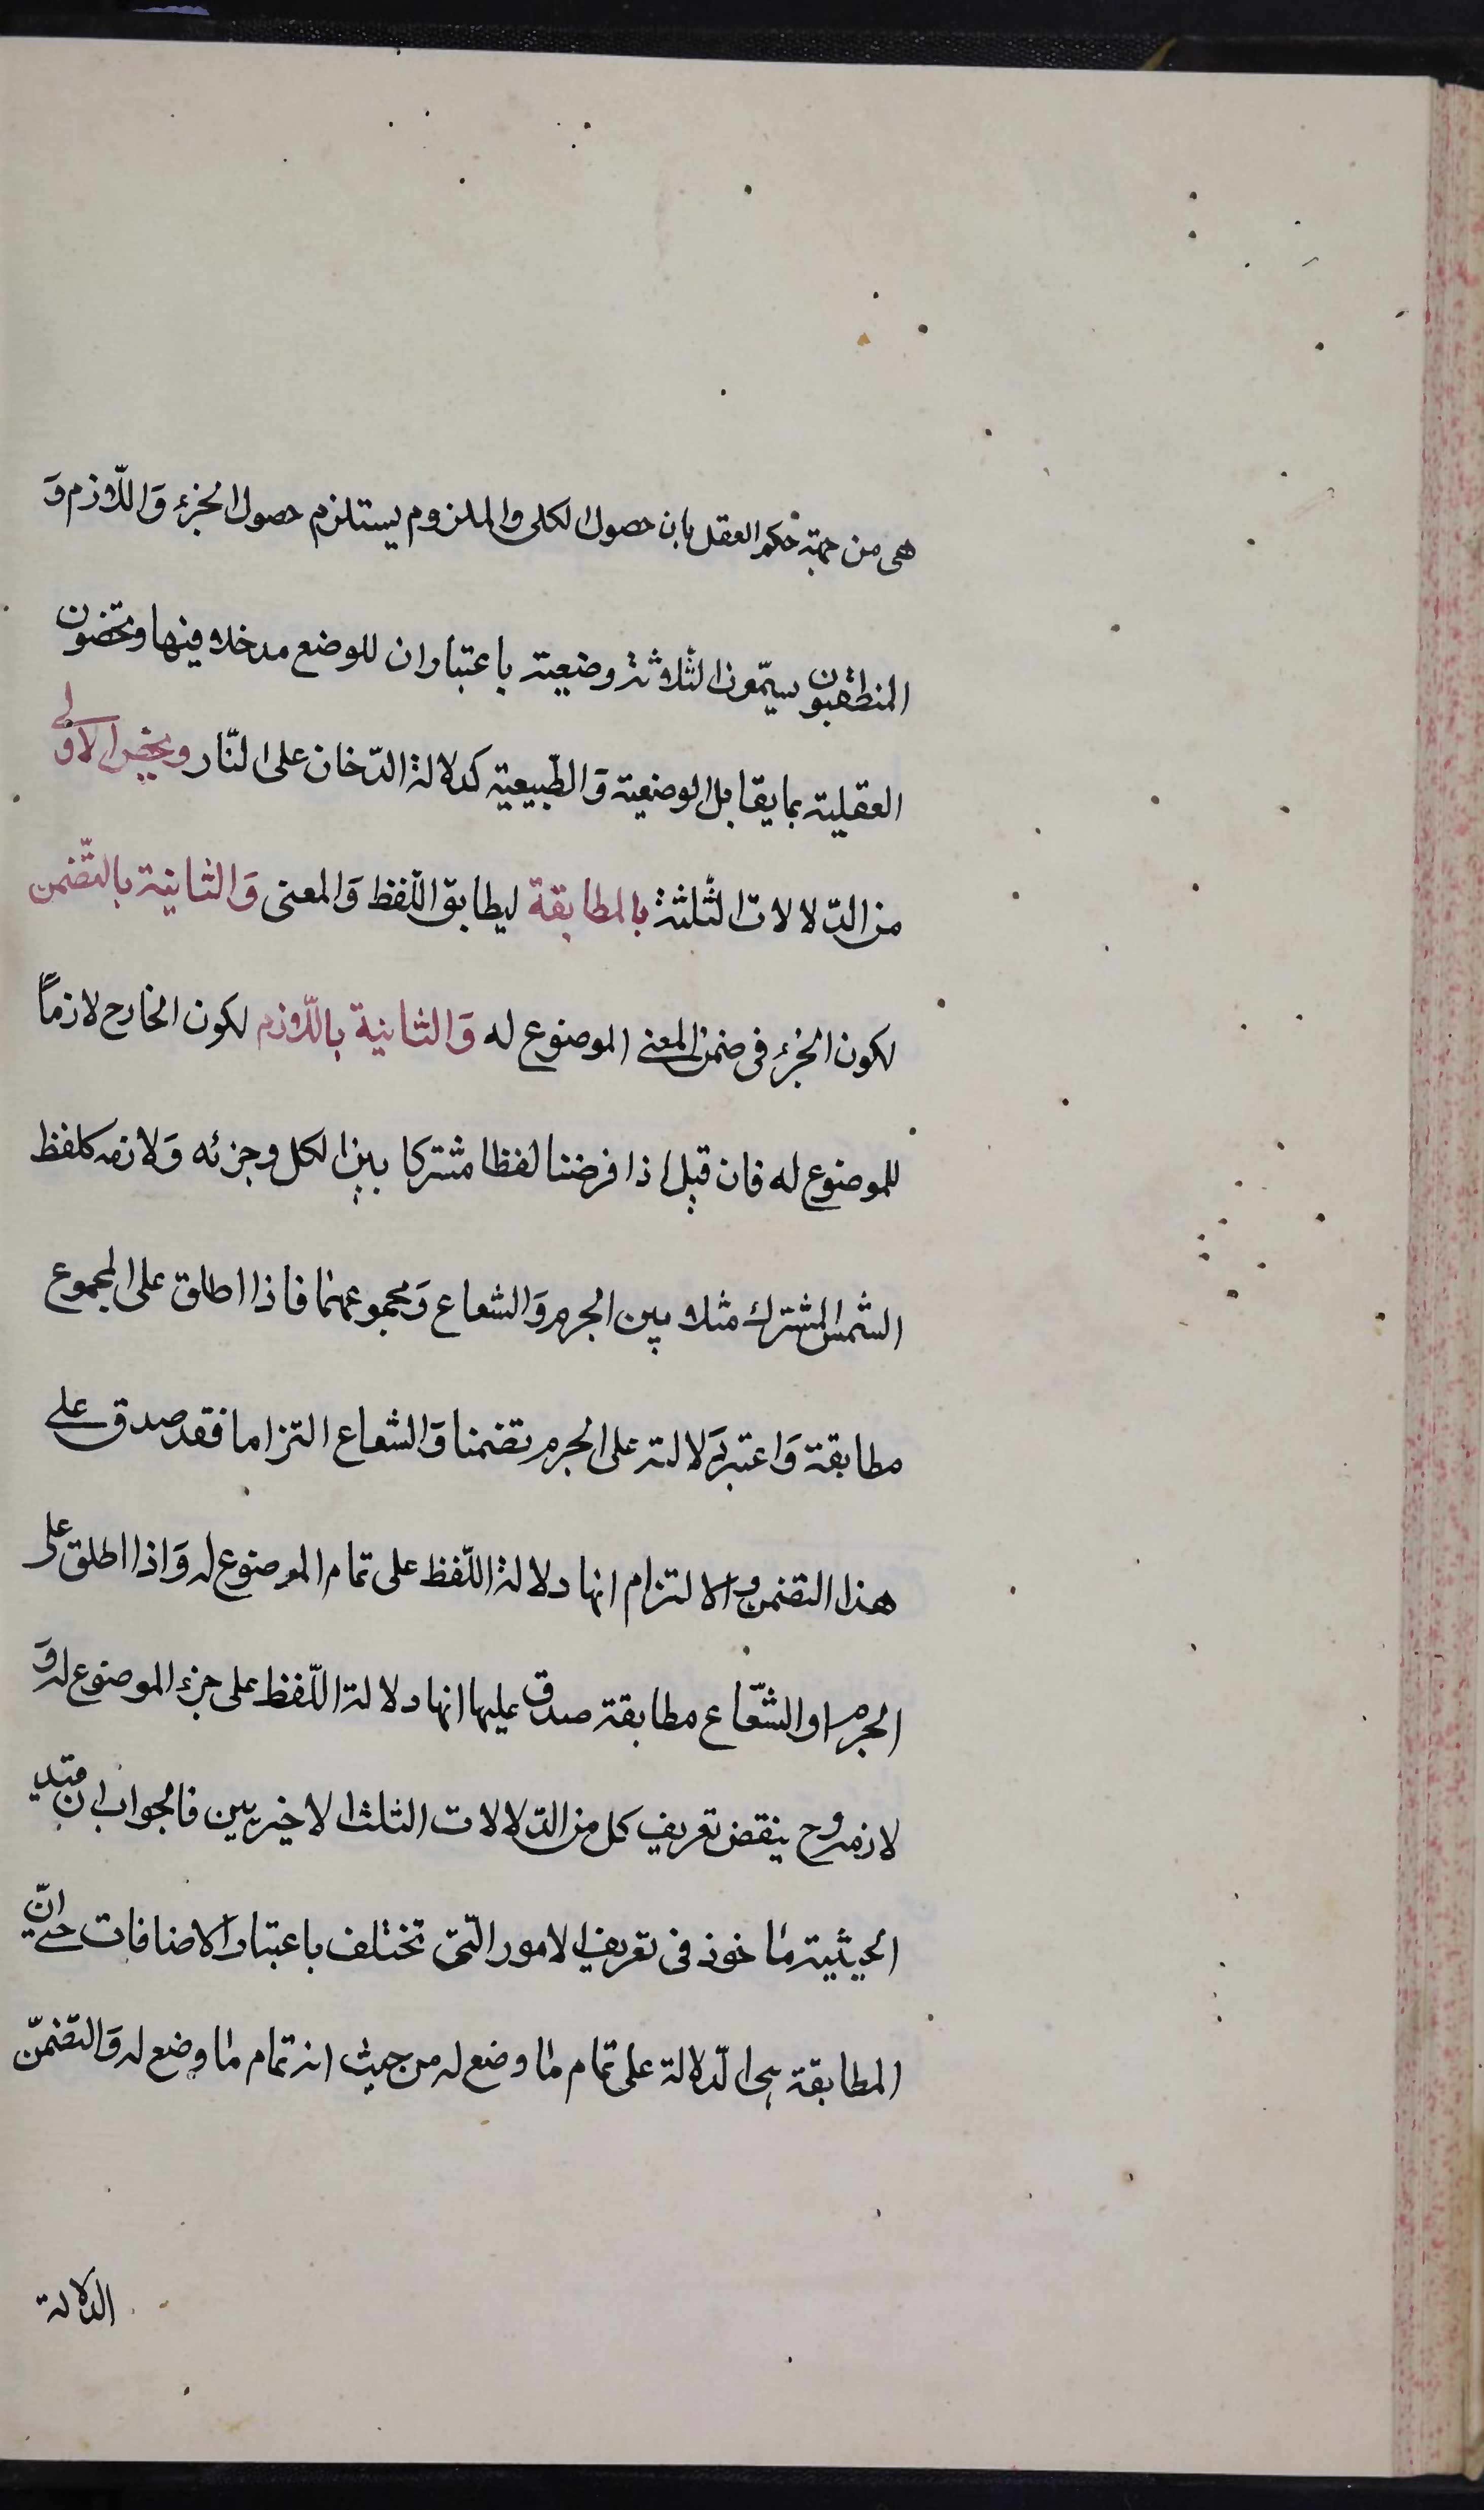 هى من جهة حكم العقل بان حصول الكلى والملزوم يستلزم حصول الجزء وَاللّازم وَ
المنطقيون يسمّون الثلاثة وضعية باعتبار ان للوضع مدخلا فيها ويخصون
العقلية بما يقابل الوضعية وَالطّبيعية كدلالة الدّخان على النّار ويخص الاولى
من الدّلالات الثّلثة بالمطابقة ليطابق اللّفظ وَالمعنى وَالثانية بالتّضمن
لكون الجزء فى ضمن المعنى الموضوع له وَالثانية باللّازم لكون الخارج لازماً
للموضوع له فان قيل اذا فرضنا لفظا مشتركا بين الكل وجزئه وَلازمه كلفظ
الشمس المشترك مثلا بين الجرم وَالشعاع وَمجموعهما فاذا اطلق على المجموع
مطابقة وَاعتبر دَلالته على الجرم تضمنا وَالشعاع التزاما فقد صدق على
هذا التضمن والالتزام انها دلالة اللّفظ على تمام الموضوع له وَاذا اطلق على
الجرم او الشّعاع مطابقة صدق عليها انها دلالة اللّفظ على جزء الموضوع له وَ
لازمه وح ينقض تعريف كل من الدّلالات الثلث الاخيريين فالجواب ان قيد
الحيثية ماخوذ فى تعريف الامور الّتى تختلف باعتبار الاضافات حتى انّ
المطابقة هى الدّلالة على تمام ما وضع له من حيث انه تمام ما وضع له وَالتضمّن
الدلالة